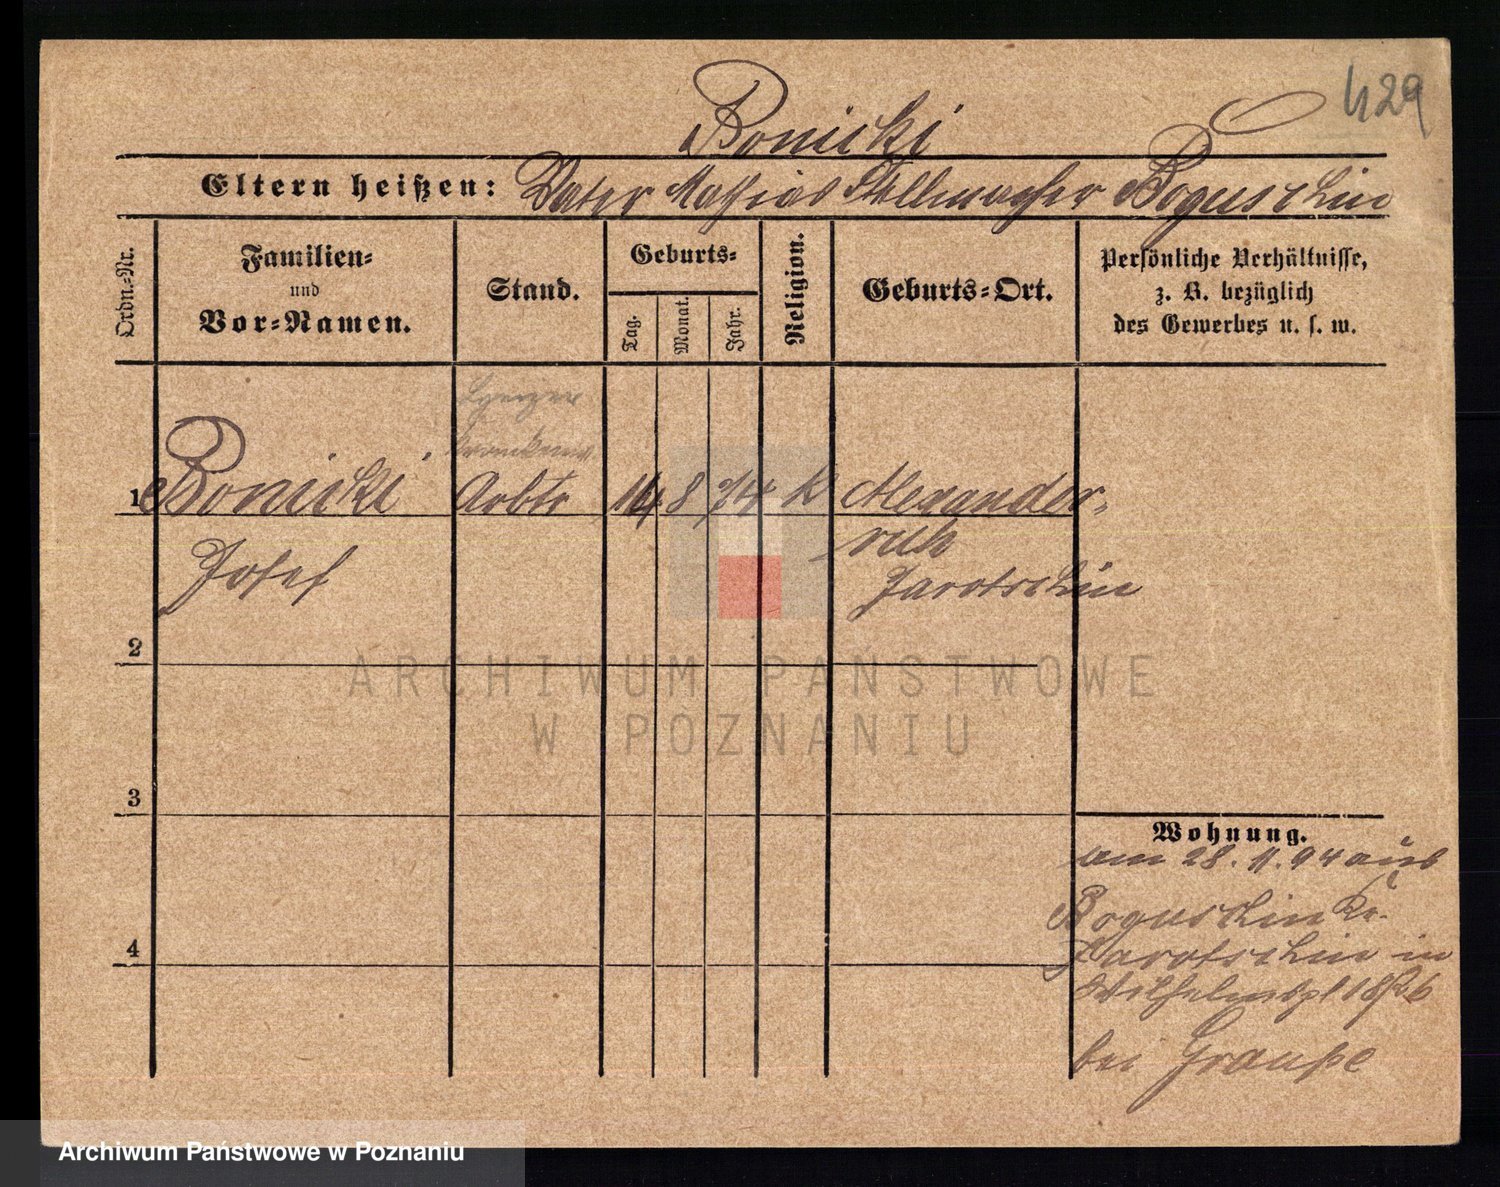 429
Bonicki
Eltern heißen: Vater Mathias Stellmacher Boguschin
Ordn.-Nr.
Familien-
und
Vor-Namen.
Stand.
Geburts-
Tag.
Monat.
Jahr.
Religion.
Geburts-Ort.
Persönliche Verhältnisse,
z. B. bezüglich
des Gewerbes u. s. w.
1 Bonicki Arbtr 14 8 74 K Alexander-
ruh
Josef
Jarotschin
2
3
4
Wohnung.
am 28. 11. 94 aus
Boguschin Kr.
Jarotschin in
Wilhelmspl 18
bei
ARCHIWUM PAŃSTWOWE
W POZNANIU
Archiwum Państwowe w Poznaniu